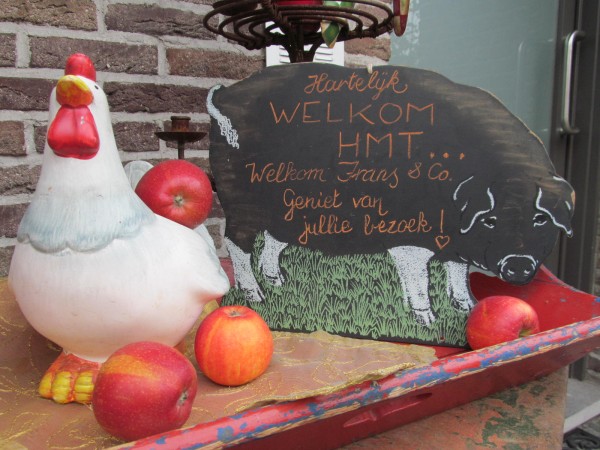 Hartelijk
WELKOM
HMT...
Welkom Frans & Co.
Geniet van
jullie bezoek!